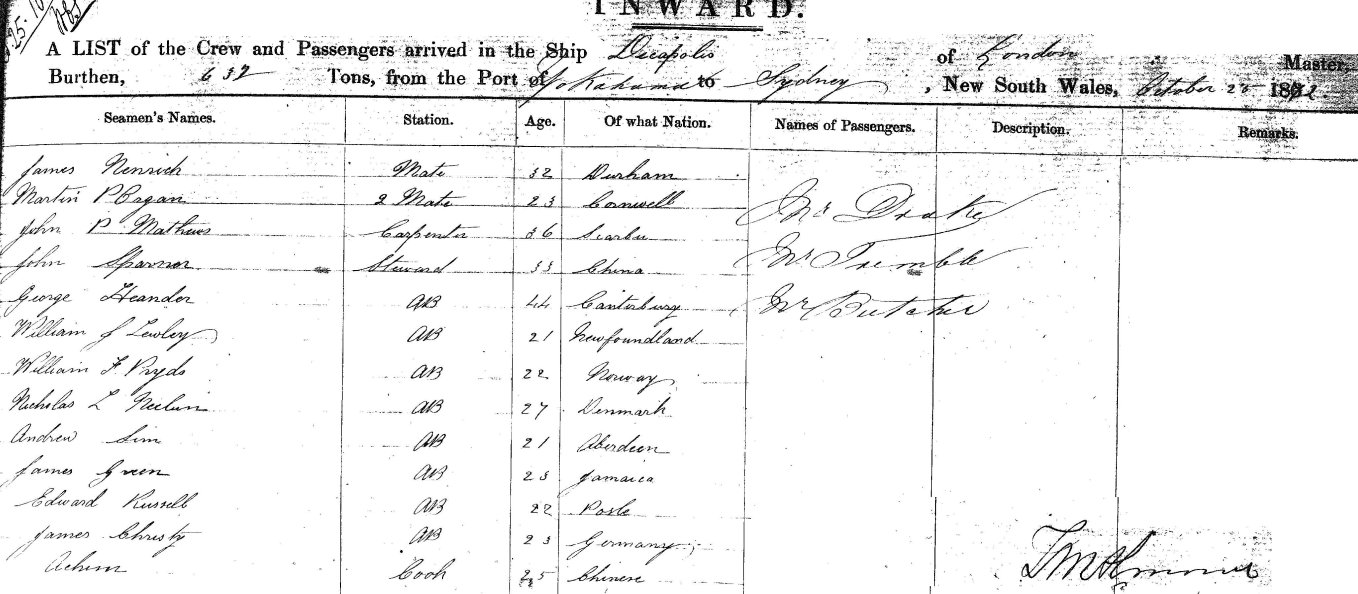 INWARD.
A LIST of the Crew and Passengers arrived in the Ship Decapolis of London Master,
Burthen, 632 Tons, from the Port of Yokahama to Sydney, New South Wales, October 25 1872
Seamen's Names. Station. Age. Of what Nation. Names of Passengers. Description. Remarks.
James Mate 32 Durham
Martin P 2 Mate 23 Cornwell Mr Drake
John P Mathews Carpenter 36
John Steward 33 China Mr Tremble
George Heander AB 44 Canterbury Mr Butcher
William J Lewley AB 21 Newfoundland
William F Pryds AB 22 Norway
Nicholas L AB 27 Denmark
Andrew Sim AB 21 Aberdeen
James Green AB 23 Jamaica
Edward Russell AB 22 Poole
James Christy AB 23 Germany
Achim Cook 25 Chinese